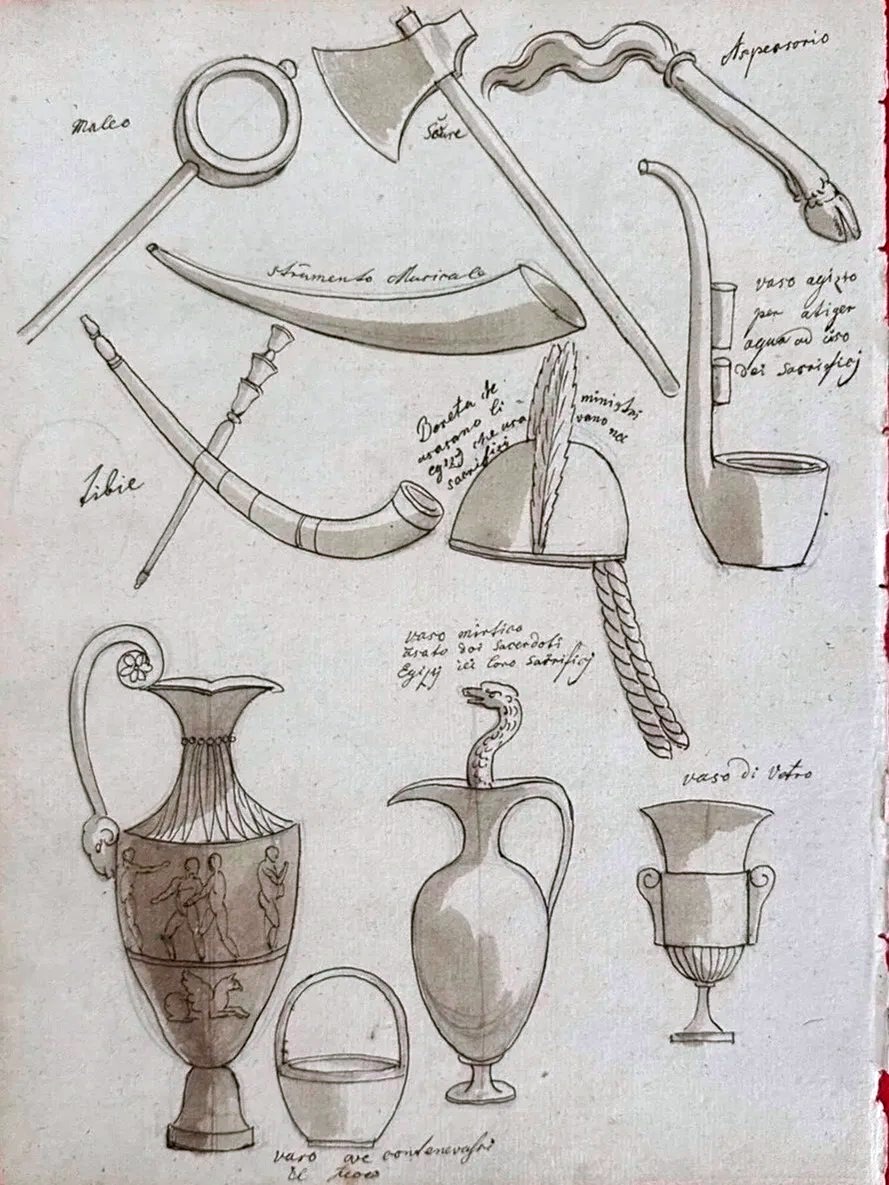 Maleo
Aspersorio
Strumento Musicale
vaso agizzo
per atiger
agua ad uso
dei Sacrificj
Boneta che
usavano li
ministri
egizj che usa
vano nei
sacrifici
Tibie
vaso mistico
usato dai Sacerdoti
Egizj nei loro Sacrificj
vaso di Vetro
vaso ove contenevasi
il fuoco